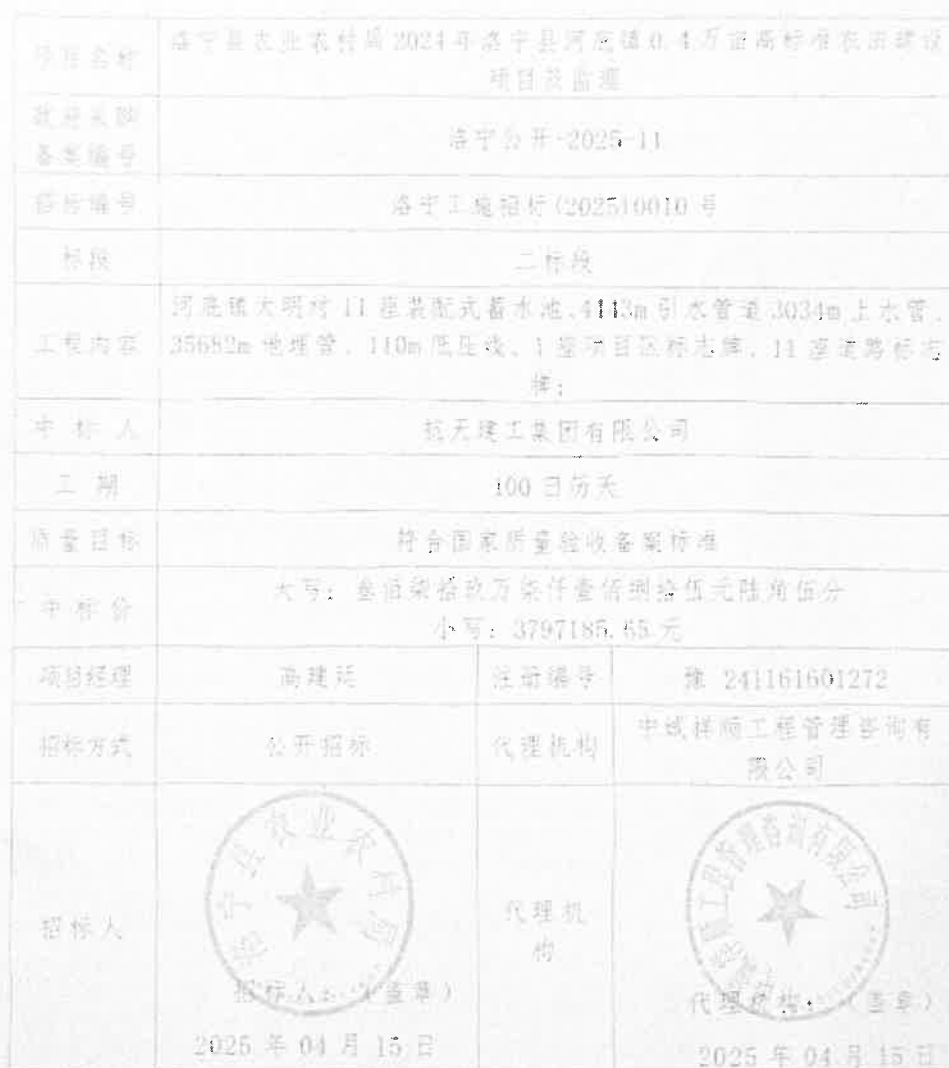 项目名称
洛宁县农业农村局2024年洛宁县河底镇0.4万亩高标准农田建设
项目及监理
政府采购
备案编号
洛宁公开-2025-11
招标编号
洛宁工施招标(2025)0010号
标段
二标段
工程内容
河底镇大明村11座装配式蓄水池、4113m引水管道3034m上水管、
35682m地埋管、110m低压线、1座项目区标志牌、11座道路标志
牌;
中标人
航天建工集团有限公司
工期
100日历天
质量目标
符合国家质量验收备案标准
中标价
大写:叁佰柒拾玖万柒仟壹佰捌拾伍元陆角伍分
小写:3797185.65元
项目经理
高建廷
注册编号
豫 241161601272
招标方式
公开招标
代理机构
中诚祥顺工程管理咨询有
限公司
招标人
洛宁县农业农村局
招标人:(盖章)
2025年04月15日
代理机
构
工程管理咨询有限公司
代理机构:(盖章)
2025年04月15日